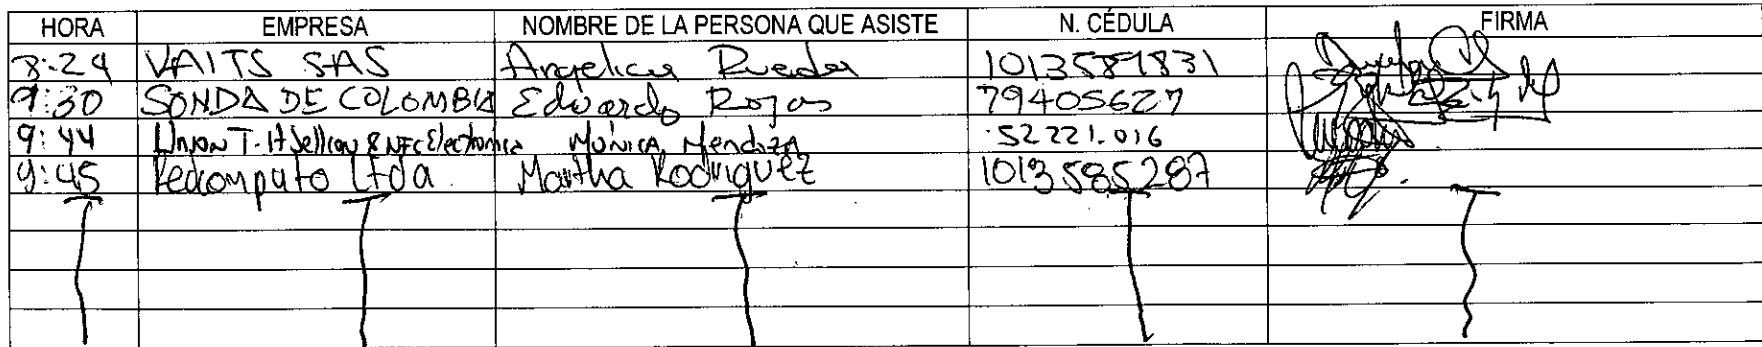 HORA EMPRESA NOMBRE DE LA PERSONA QUE ASISTE N. CÉDULA FIRMA
8:24 VAITS SAS Angelica Rueda 1013581831
9:30 SONDA DE COLOMBIA Eduardo Rojas 79405627
9:44 Union T. & NFC Electronica Mónica Mendoza 52221.016
9:45 Redcomputo Ltda. Martha Rodriguez 1013585287